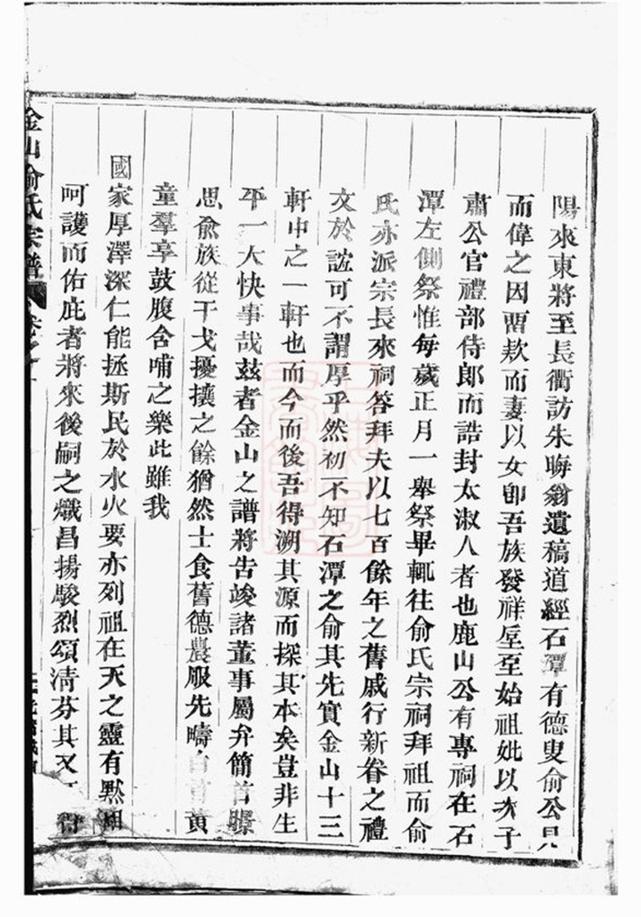 陽來東將至長衢訪朱晦翁遺稿道經石潭有德叟俞公見
而偉之因畱欵而妻以女卽吾族發祥垕至始祖妣以次子
肅公官禮部侍郎而誥封太淑人者也鹿山公有專祠在石
潭左側祭惟每歲正月一舉祭畢輒往俞氏宗祠拜祖而俞
氏亦派宗長來祠答拜夫以七百餘年之舊戚行新眷之禮
文於誼可不謂厚乎然初不知石潭之俞其先實金山十三
軒中之一軒也而今而後吾得溯其源而探其本矣豈非生
平一大快事哉兹者金山之譜將告竣諸董事屬弁簡首驟
思俞族從干戈擾攘之餘猶然士食舊德農服先疇白叟黃
童羣享鼓腹含哺之樂此雖我
國家厚澤深仁能拯斯民於水火要亦列祖在天之靈有默相
呵護而佑庇者將來後嗣之熾昌揚駿烈頌清芬其又
金山俞氏宗譜